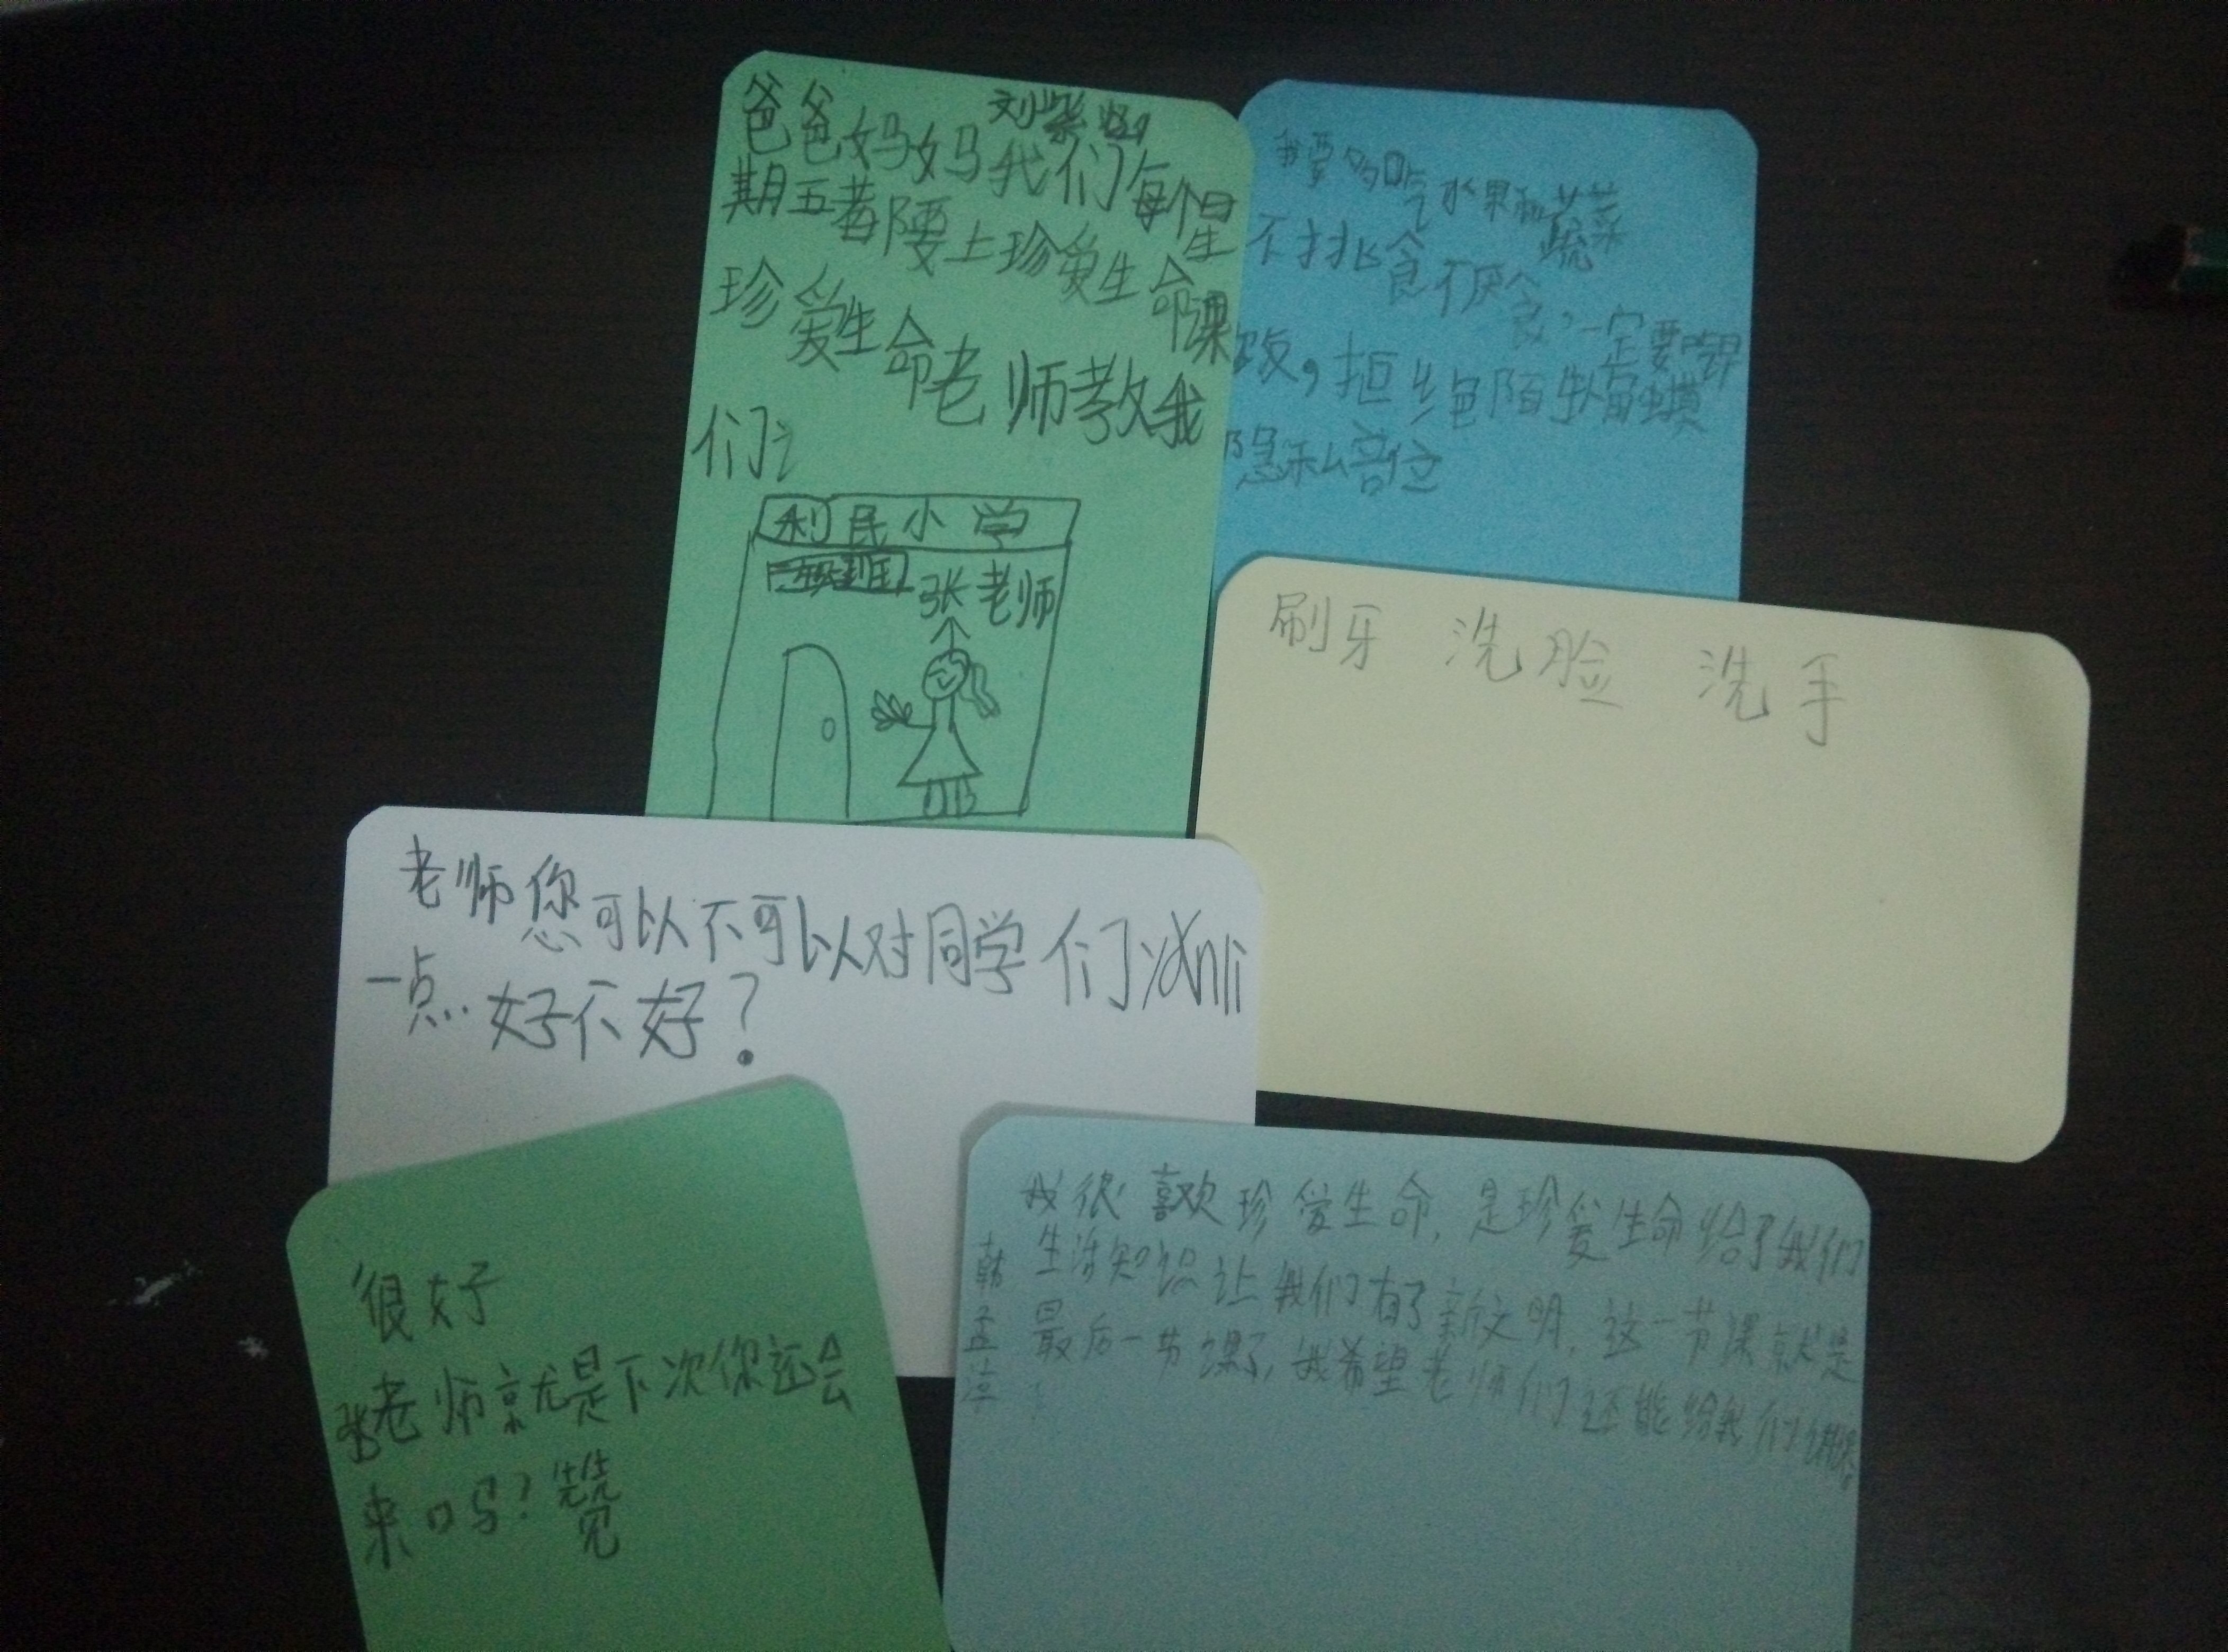 爸爸妈妈我们每个星
期五都要上珍爱生命课
珍爱生命老师教我
们
利民小学
张老师
我要多吃水果和蔬菜
不挑食不厌食，一定要
改，拒绝陌生人
隐私部位
刷牙 洗脸 洗手
老师您可以不可以对同学们yanli
一点 好不好？
很好
张老师就是下次你还会
来吗？赞
我很喜欢珍爱生命，是珍爱生命给了我们
生活知识让我们有了新文明，这一节课就是
最后一节课了，我希望老师们还能给我们